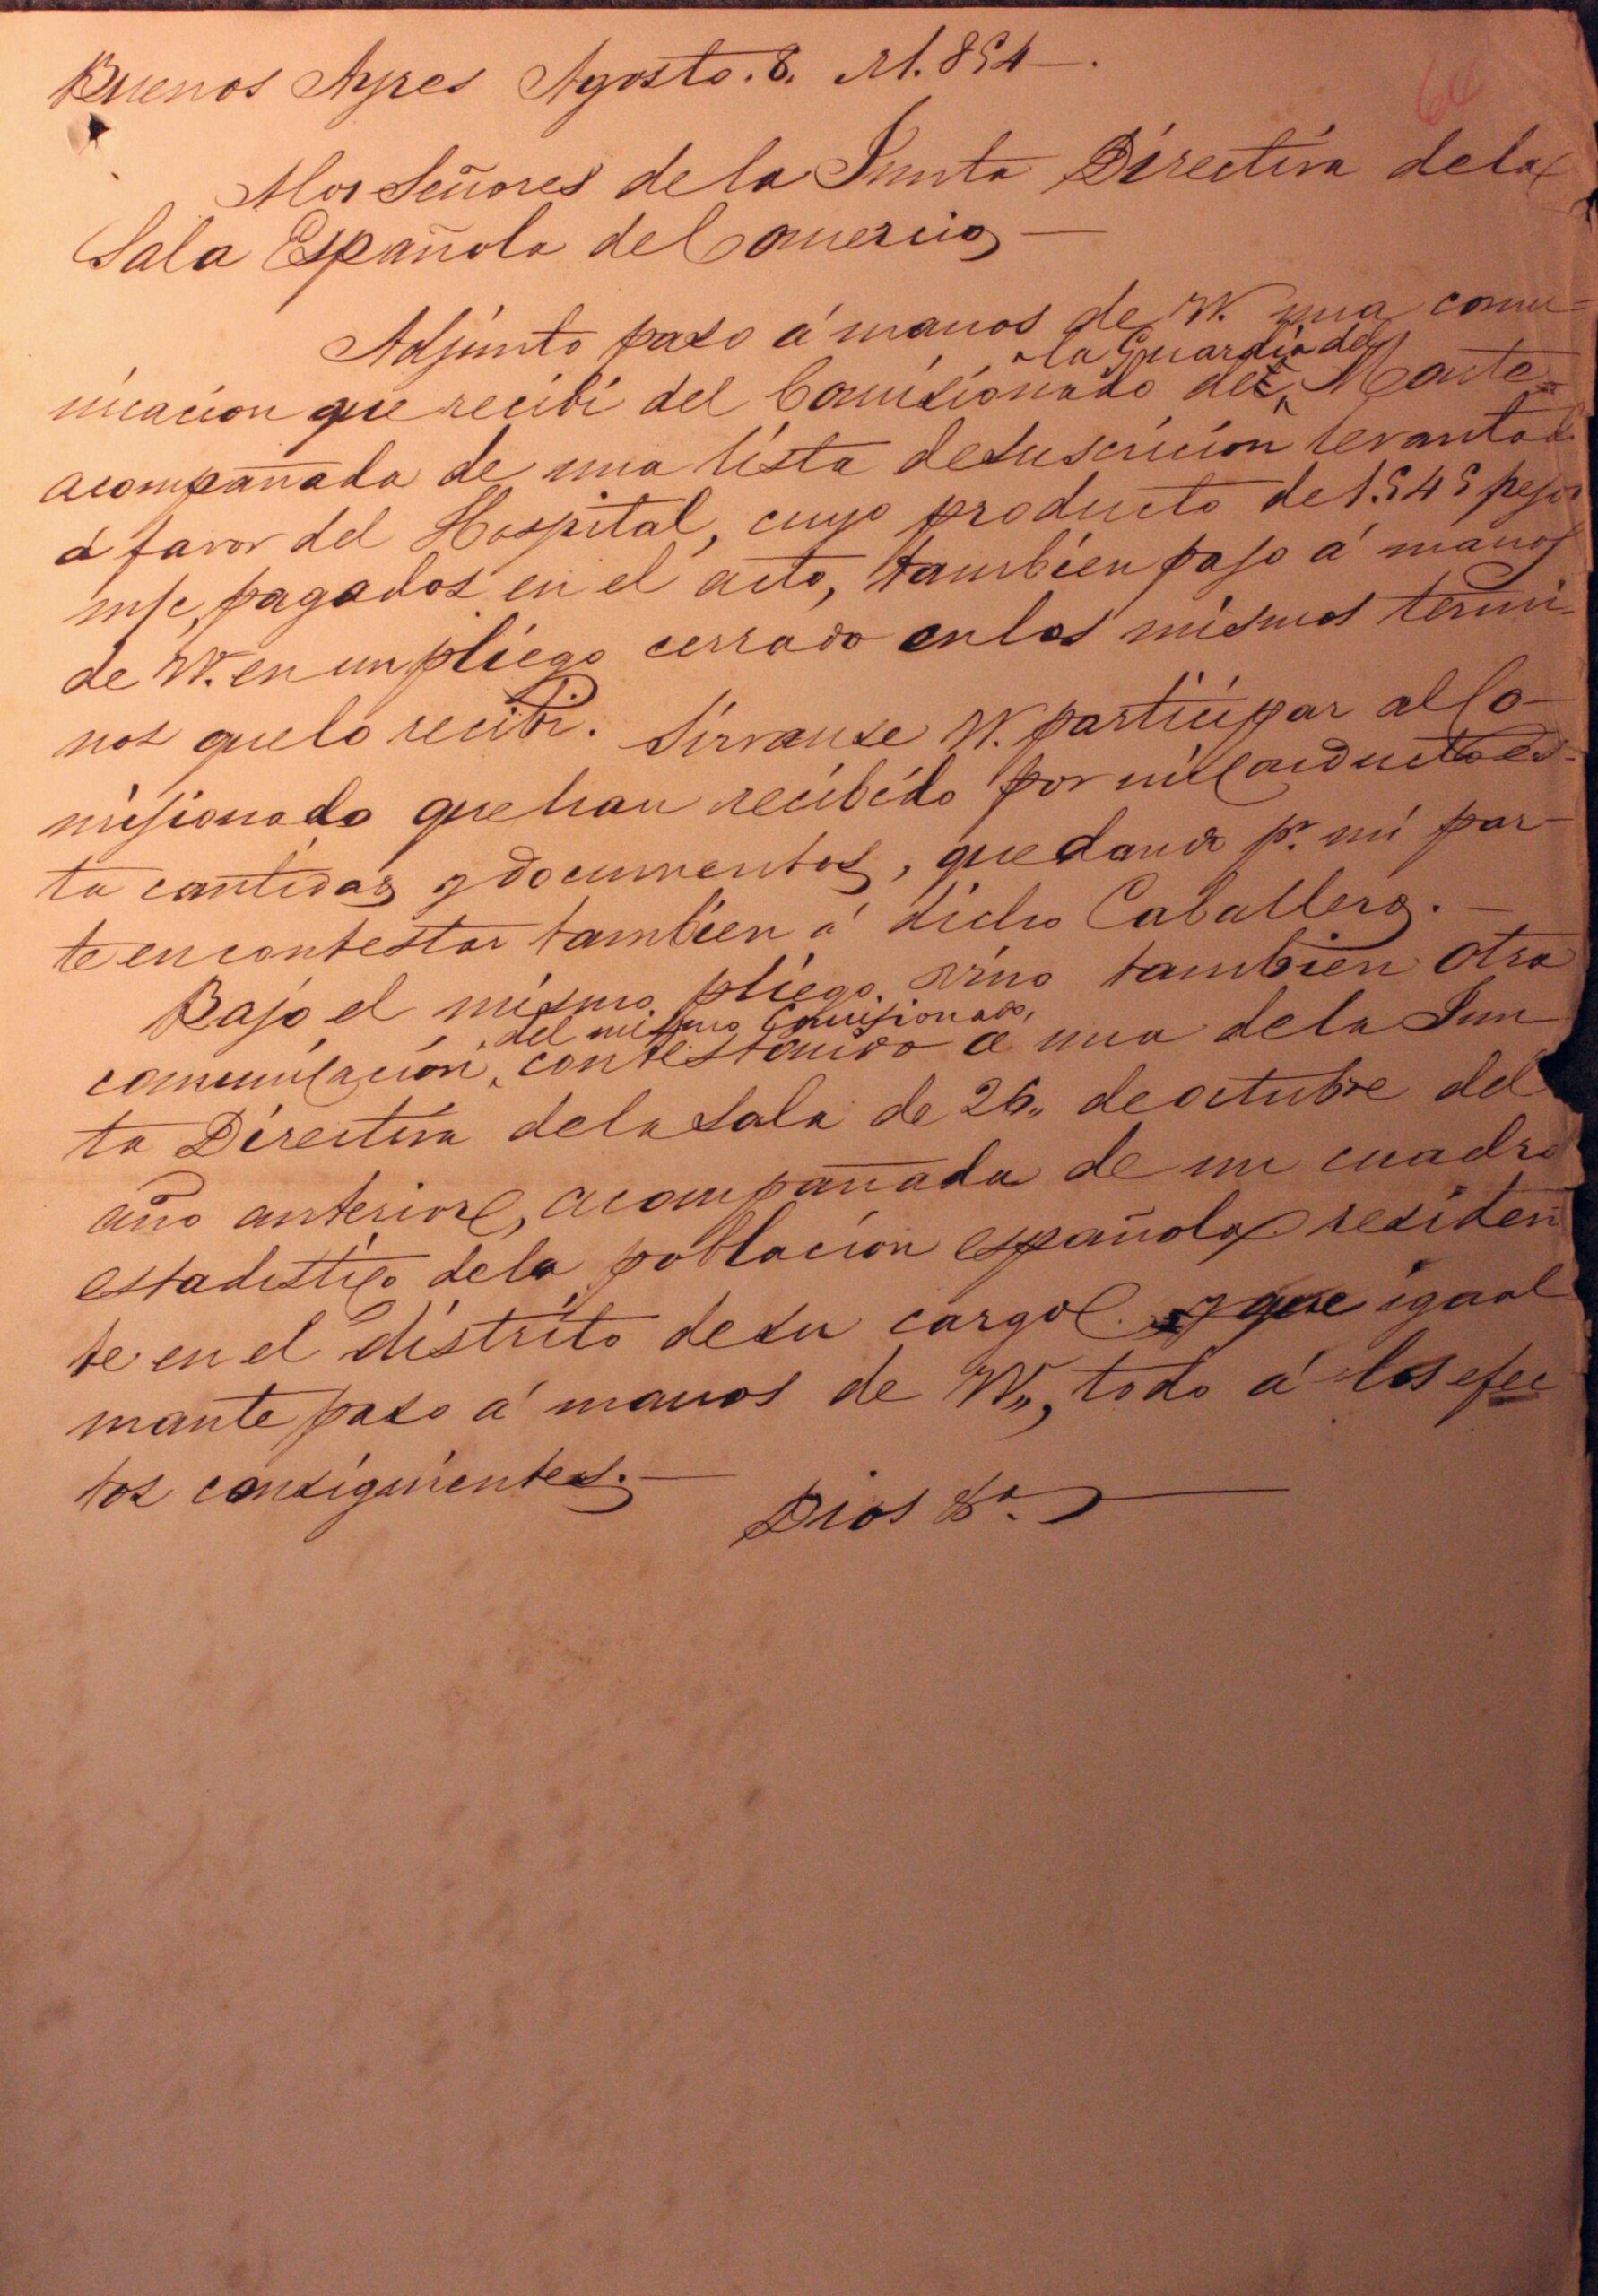 64
Buenos Ayres Agosto. 8. d1.854.
Alos Señores de la Junta Directiva dela
Sala Española del Comercio
Adjunto paso á manos de VV. una comu=
nicacion que recibi del Comisionado de la Guardia del Monte=
acompañada de una lista de suscricion levantada
á favor del Hospital, cuyo producto de 1.545 pesos
m/c, pagados en el acto, tambien paso á manos
de VV. en un pliego cerrado en los mismos termi-
nos que lo recibi. Sirvanse VV. participar al Co-
misionado que han recibido por mi conducto es-
ta cantidad y documentos, quedando pr. mi par-
te en contestar tambien á dicho Caballero.
Bajo el mismo pliego. vino tambien otra
comunicacion, del mismo Comisionado, contestando a una de la Jun
ta Directiva dela Sala de 26,, de octubre del
año anterior, acompañada de un cuadro
estadistico dela poblacion española residen
te en el distrito de su cargo. y que igual
mante paso á manos de VV,,, todo á los efec
tos consiguientes.
Dios &a.